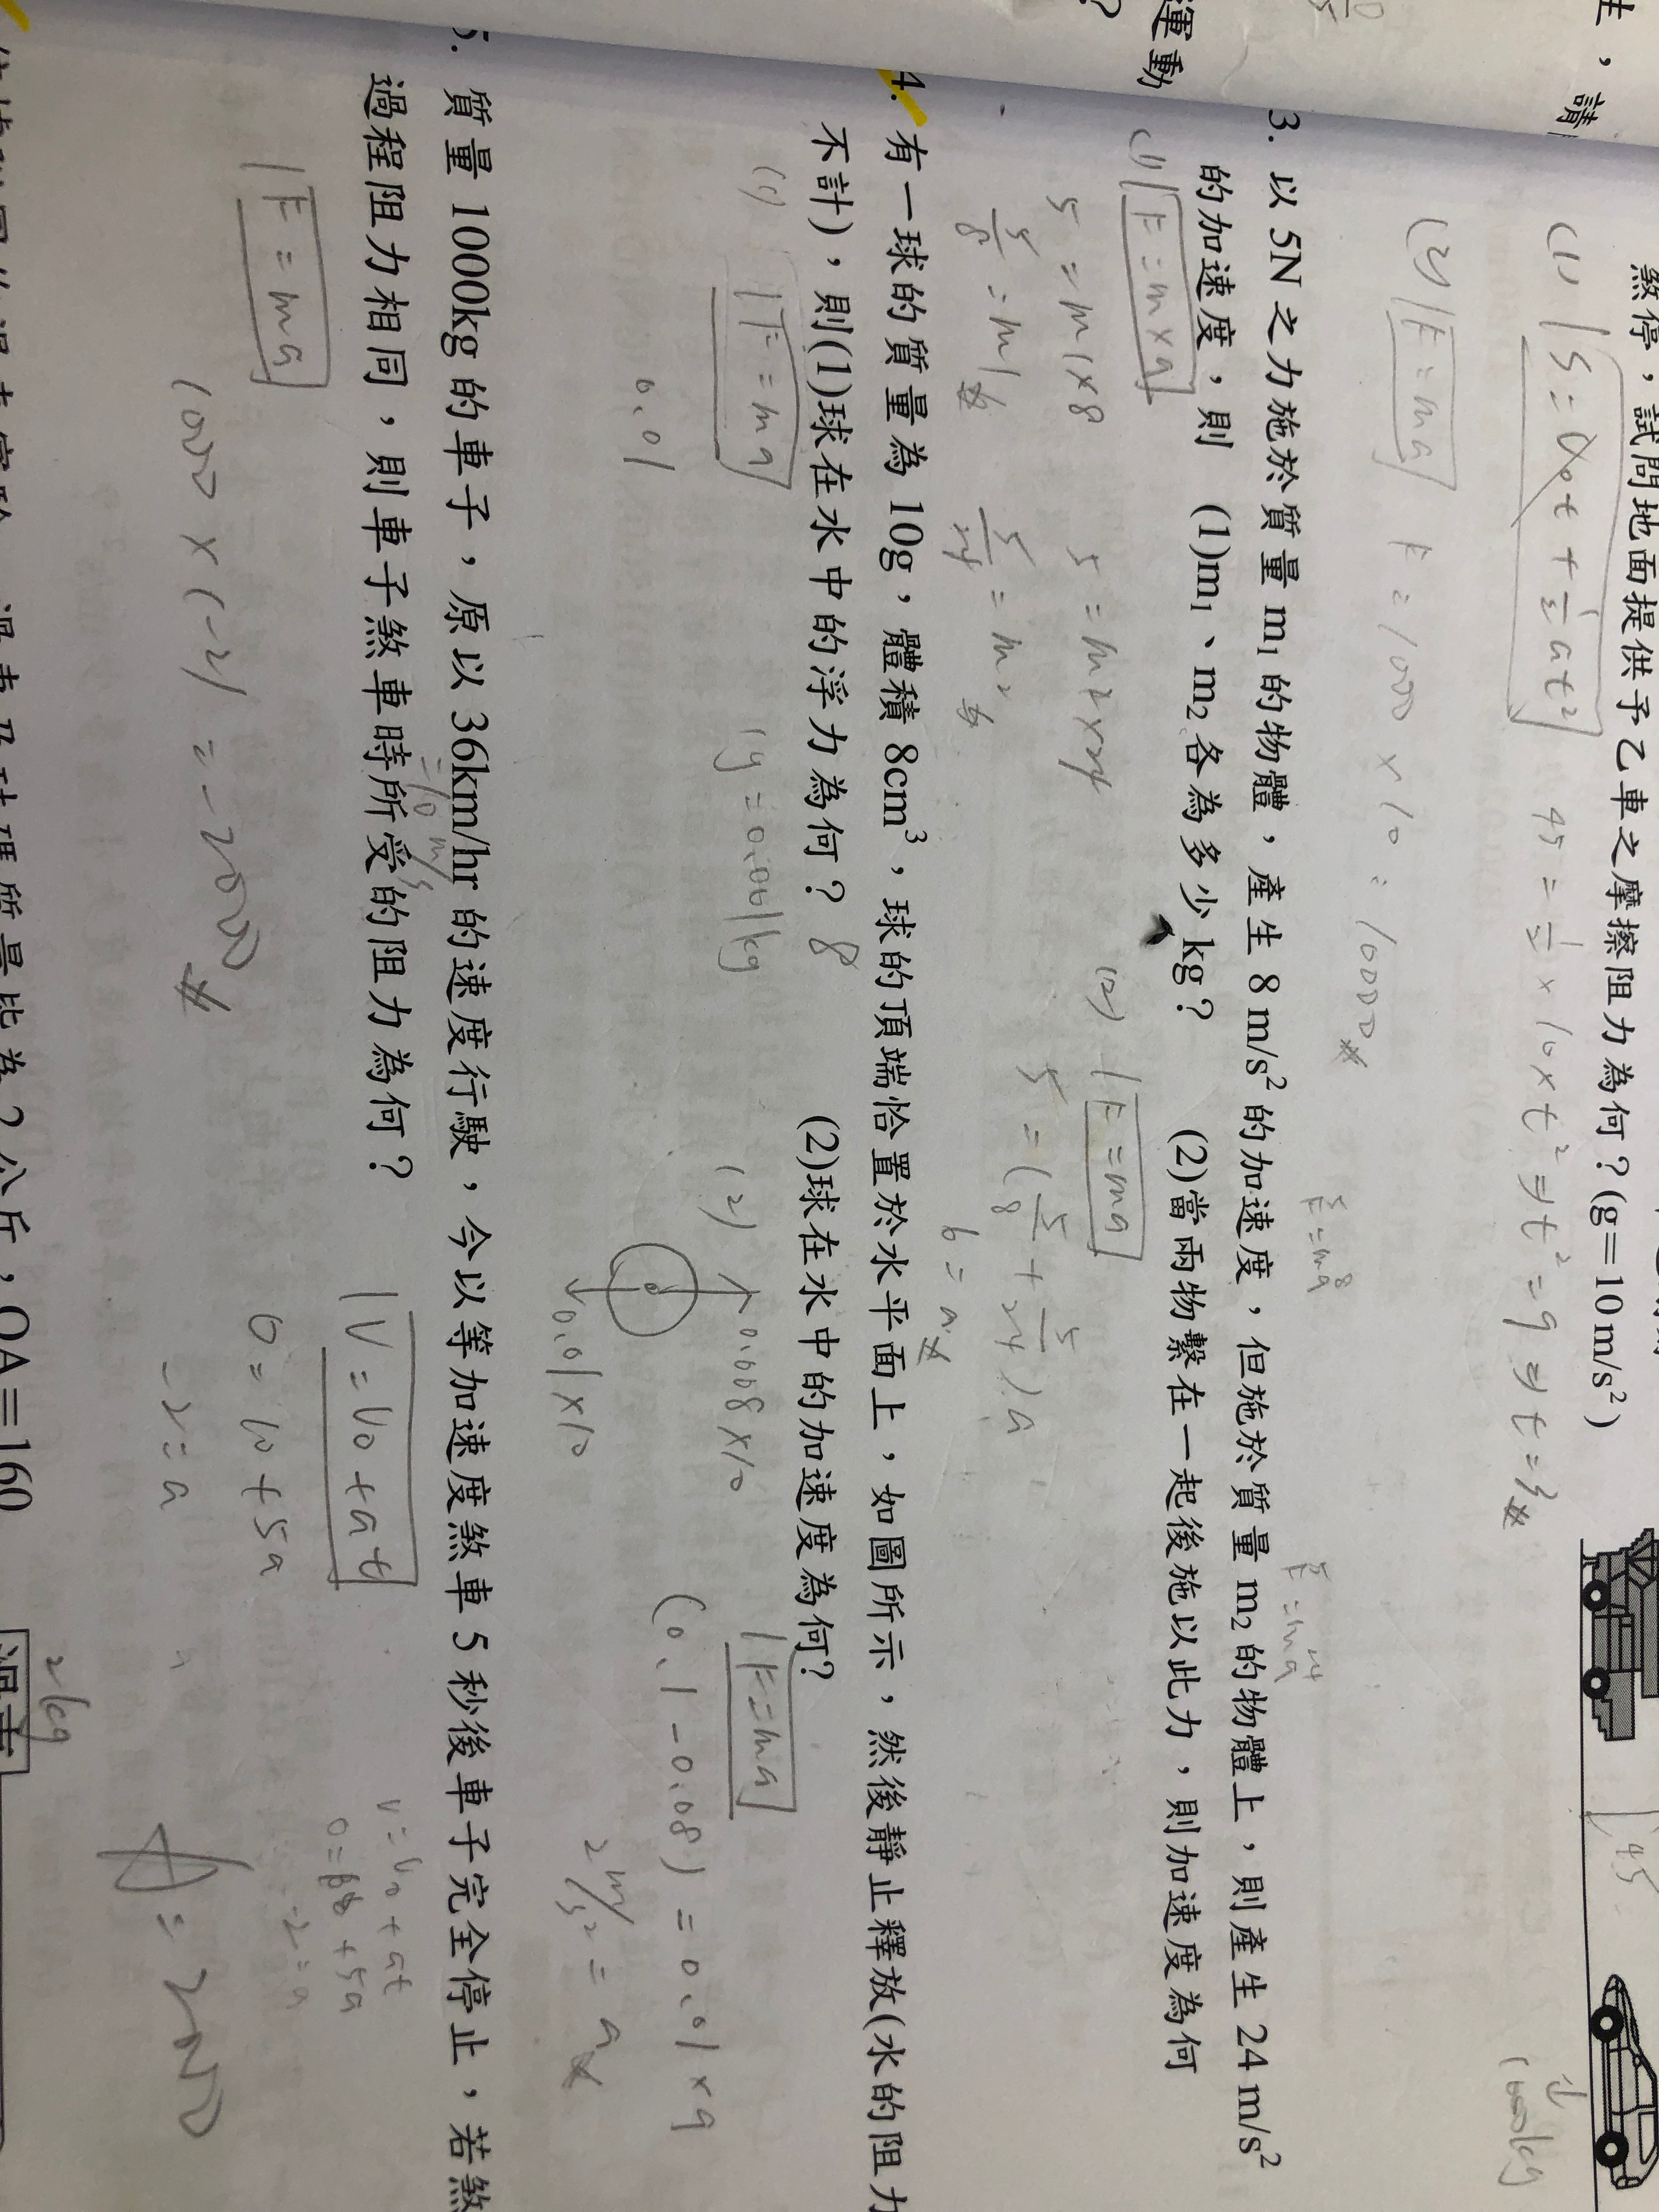 生，請
運動
?
煞停，試問地面提供予乙車之摩擦阻力為何？(g＝10 m/s²)
(1) S=V₀t+½at² 45=½×10×t² ⇒t²=9 ⇒t=3
45
(2) F=ma F=1000×10=10000
1000kg
3. 以 5N 之力施於質量 m₁ 的物體，產生 8 m/s² 的加速度，但施於質量 m₂ 的物體上，則產生 24 m/s²
的加速度，則 (1)m₁、m₂ 各為多少 kg？ (2)當兩物繫在一起後施以此力，則加速度為何
(1) F=m×a
5=m1×8 5=m2×24
5/8=m1 5/24=m2
(2) F=ma
5=(5/8+5/24)a
6=a
4. 有一球的質量為 10g，體積 8cm³，球的頂端恰置於水平面上，如圖所示，然後靜止釋放(水的阻力
不計)，則(1)球在水中的浮力為何？ 8 (2)球在水中的加速度為何?
(1) F=ma 1g=0.001kg
0.01
(2) 0.008×10 F=ma
0.01×10 (0.1-0.08)=0.01×a
2m/s²=a
5. 質量 1000kg 的車子，原以 36km/hr 的速度行駛，今以等加速度煞車 5 秒後車子完全停止，若煞
=10m/s
過程阻力相同，則車子煞車時所受的阻力為何？
F=ma V=V₀+at
1000×(-2)=-2000 0=10+5a
-2=a
V=V₀+at
-2=a
2kg
質量皆為 2 公斤，OA＝160